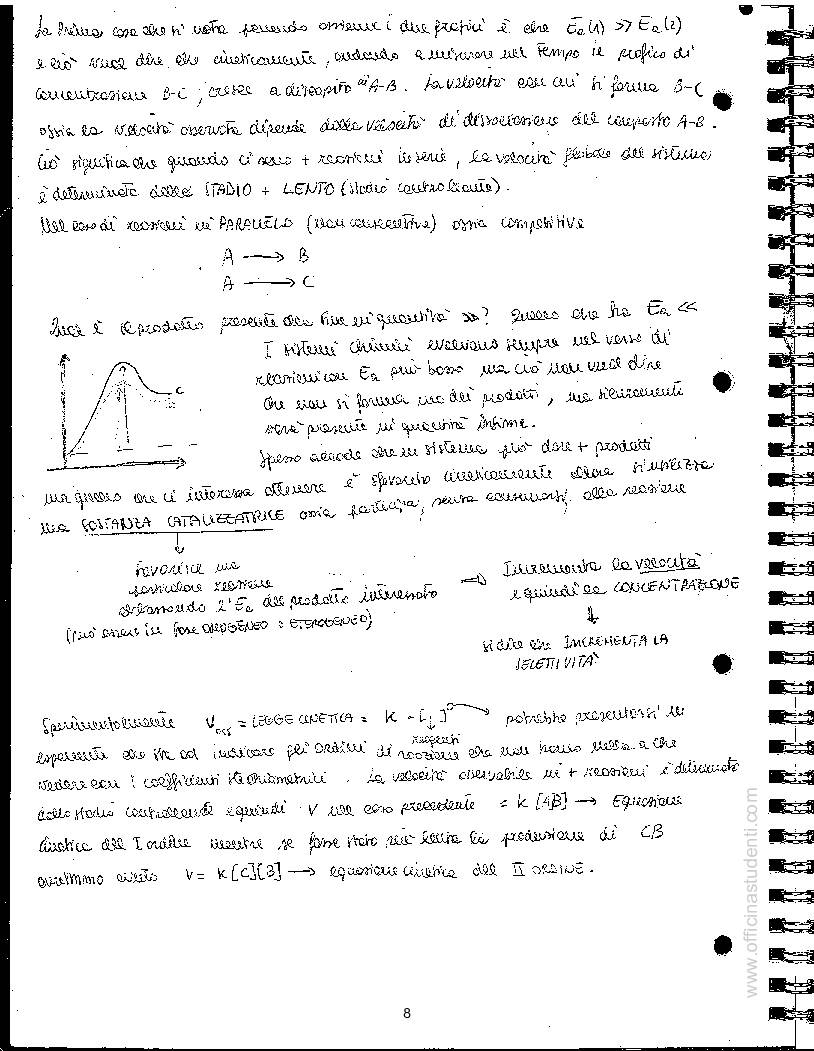 La prima cosa che si nota ponendo assieme i due grafici è che Ea(1) >> Ea(2)
e ciò vuol dire che cineticamente, andando a misurare nel tempo il profico di
concentrazione B-C, cresce a discapito di A-B. La velocità con cui si forma B-C
ossia la velocità osservata dipende dalla velocità di dissociazione del composto A-B.
Ciò significa che quando ci sono + reazioni in serie, la velocità globale del sistema
è determinata dallo STADIO + LENTO (stadio controllante).
Nel caso di reazioni in PARALLELO (non consecutive) ossia competitive
A → B
A → C
Qual è il prodotto presente alla fine in quantità >>? Quello che ha Ea <<
I sistemi chimici evolvono sempre nel verso di
reazioni con Ea più basso ma ciò non vuol dire
che non si forma uno dei prodotti, ma sicuramente
sarà presente in quantità infime.
C
Spesso accade che un sistema può dare + prodotti
ma quello che ci interessa ottenere è sfavorito cineticamente allora si utilizza
una SOSTANZA CATALIZZATRICE ossia partecipa, senza consumarsi, alla reazione
favorisce una
particolare reazione
abbassando l'Ea del prodotto interessato
(può essere in fase OMOGENEO o ETEROGENEO)
⇒ Incrementa la velocità
e quindi la CONCENTRAZIONE
si dice che INCREMENTA LA
SELETTIVITÀ
Sperimentalmente Voss = LEGGE CINETICA = K · [ ] → potrebbe presentarsi un
reagenti
esponente che sta ad indicare gli ordini di reazione che non hanno nulla a che
vedere con i coefficienti stechiometrici. La velocità osservabile in + reazioni è determinata
dallo stadio controllante e quindi V nel caso precedente = K [AB] → Equazione
cinetica del I ordine mentre se fosse stato più lenta la produzione di CB
avremmo avuto V = K[C][B] → equazione cinetica del II ORDINE.
8
www.officinastudenti.com